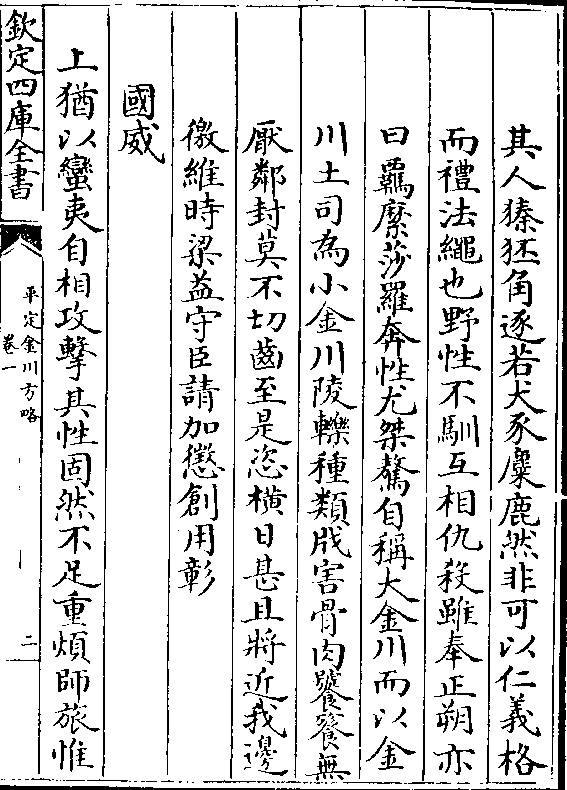 其人獉狉角逐若犬豕麋鹿然非可以仁義格
而禮法繩也野性不馴互相仇殺雖奉正朔亦
曰羈縻莎羅奔性尤桀驁自稱大金川而以金
川土司為小金川陵轢種類戕害骨肉饕餮無
厭鄰封莫不切齒至是恣橫日甚且將近我邊
徼維時梁益守臣請加懲創用彰
國威
上猶以蠻夷自相攻擊其性固然不足重煩師旅惟
欽定四庫全書
平定金川方略
卷一
二